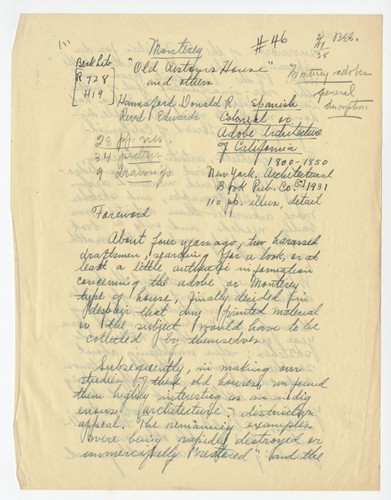 Monterey
# 46
2/17/38
BRB.
Berk Lib.
R 728
H19
"Old Astoyrs House"
and others
Monterey adobes
general
description
Hannaford Donald R. Spanish
Revel Edwards Colonial or
Adobe Architecture
of California
1800-1850
28 pp. ms.
34 pictures
9 drawings
New York, Architectural
Book Pub. Co. 1931
110 pp. illus, detail
Foreword
About four years ago, two harassed
draftsmen, searching for a book, or at
least a little authentic information
concerning the adobe or Monterey
type of house, finally decided in
despair that any printed material
on the subject would have to be
collected by themselves.
Subsequently, in making our
studies of these old houses, we found
them highly interesting as an indig
enous architecture of distinctive
appeal. The remaining examples
were being rapidly destroyed or
unmercifully "restored" and the